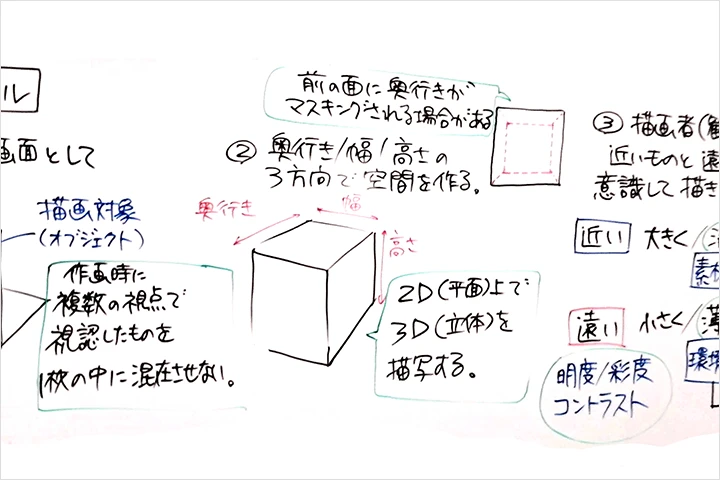 ル
画面として
描画対象
(オブジェクト)
作画時に
複数の視点で
視認したものを
1枚の中に混在させない。
前の面に奥行きが
マスキングされる場合がある
② 奥行き/幅/高さの
3方向で空間を作る。
奥行き
幅
高さ
2D(平面)上で
3D(立体)を
描写する。
③ 描画者(
近いものと遠
意識して描き
近い 大きく/
素材
遠い 小さく/薄
環境
明度/彩度
コントラスト